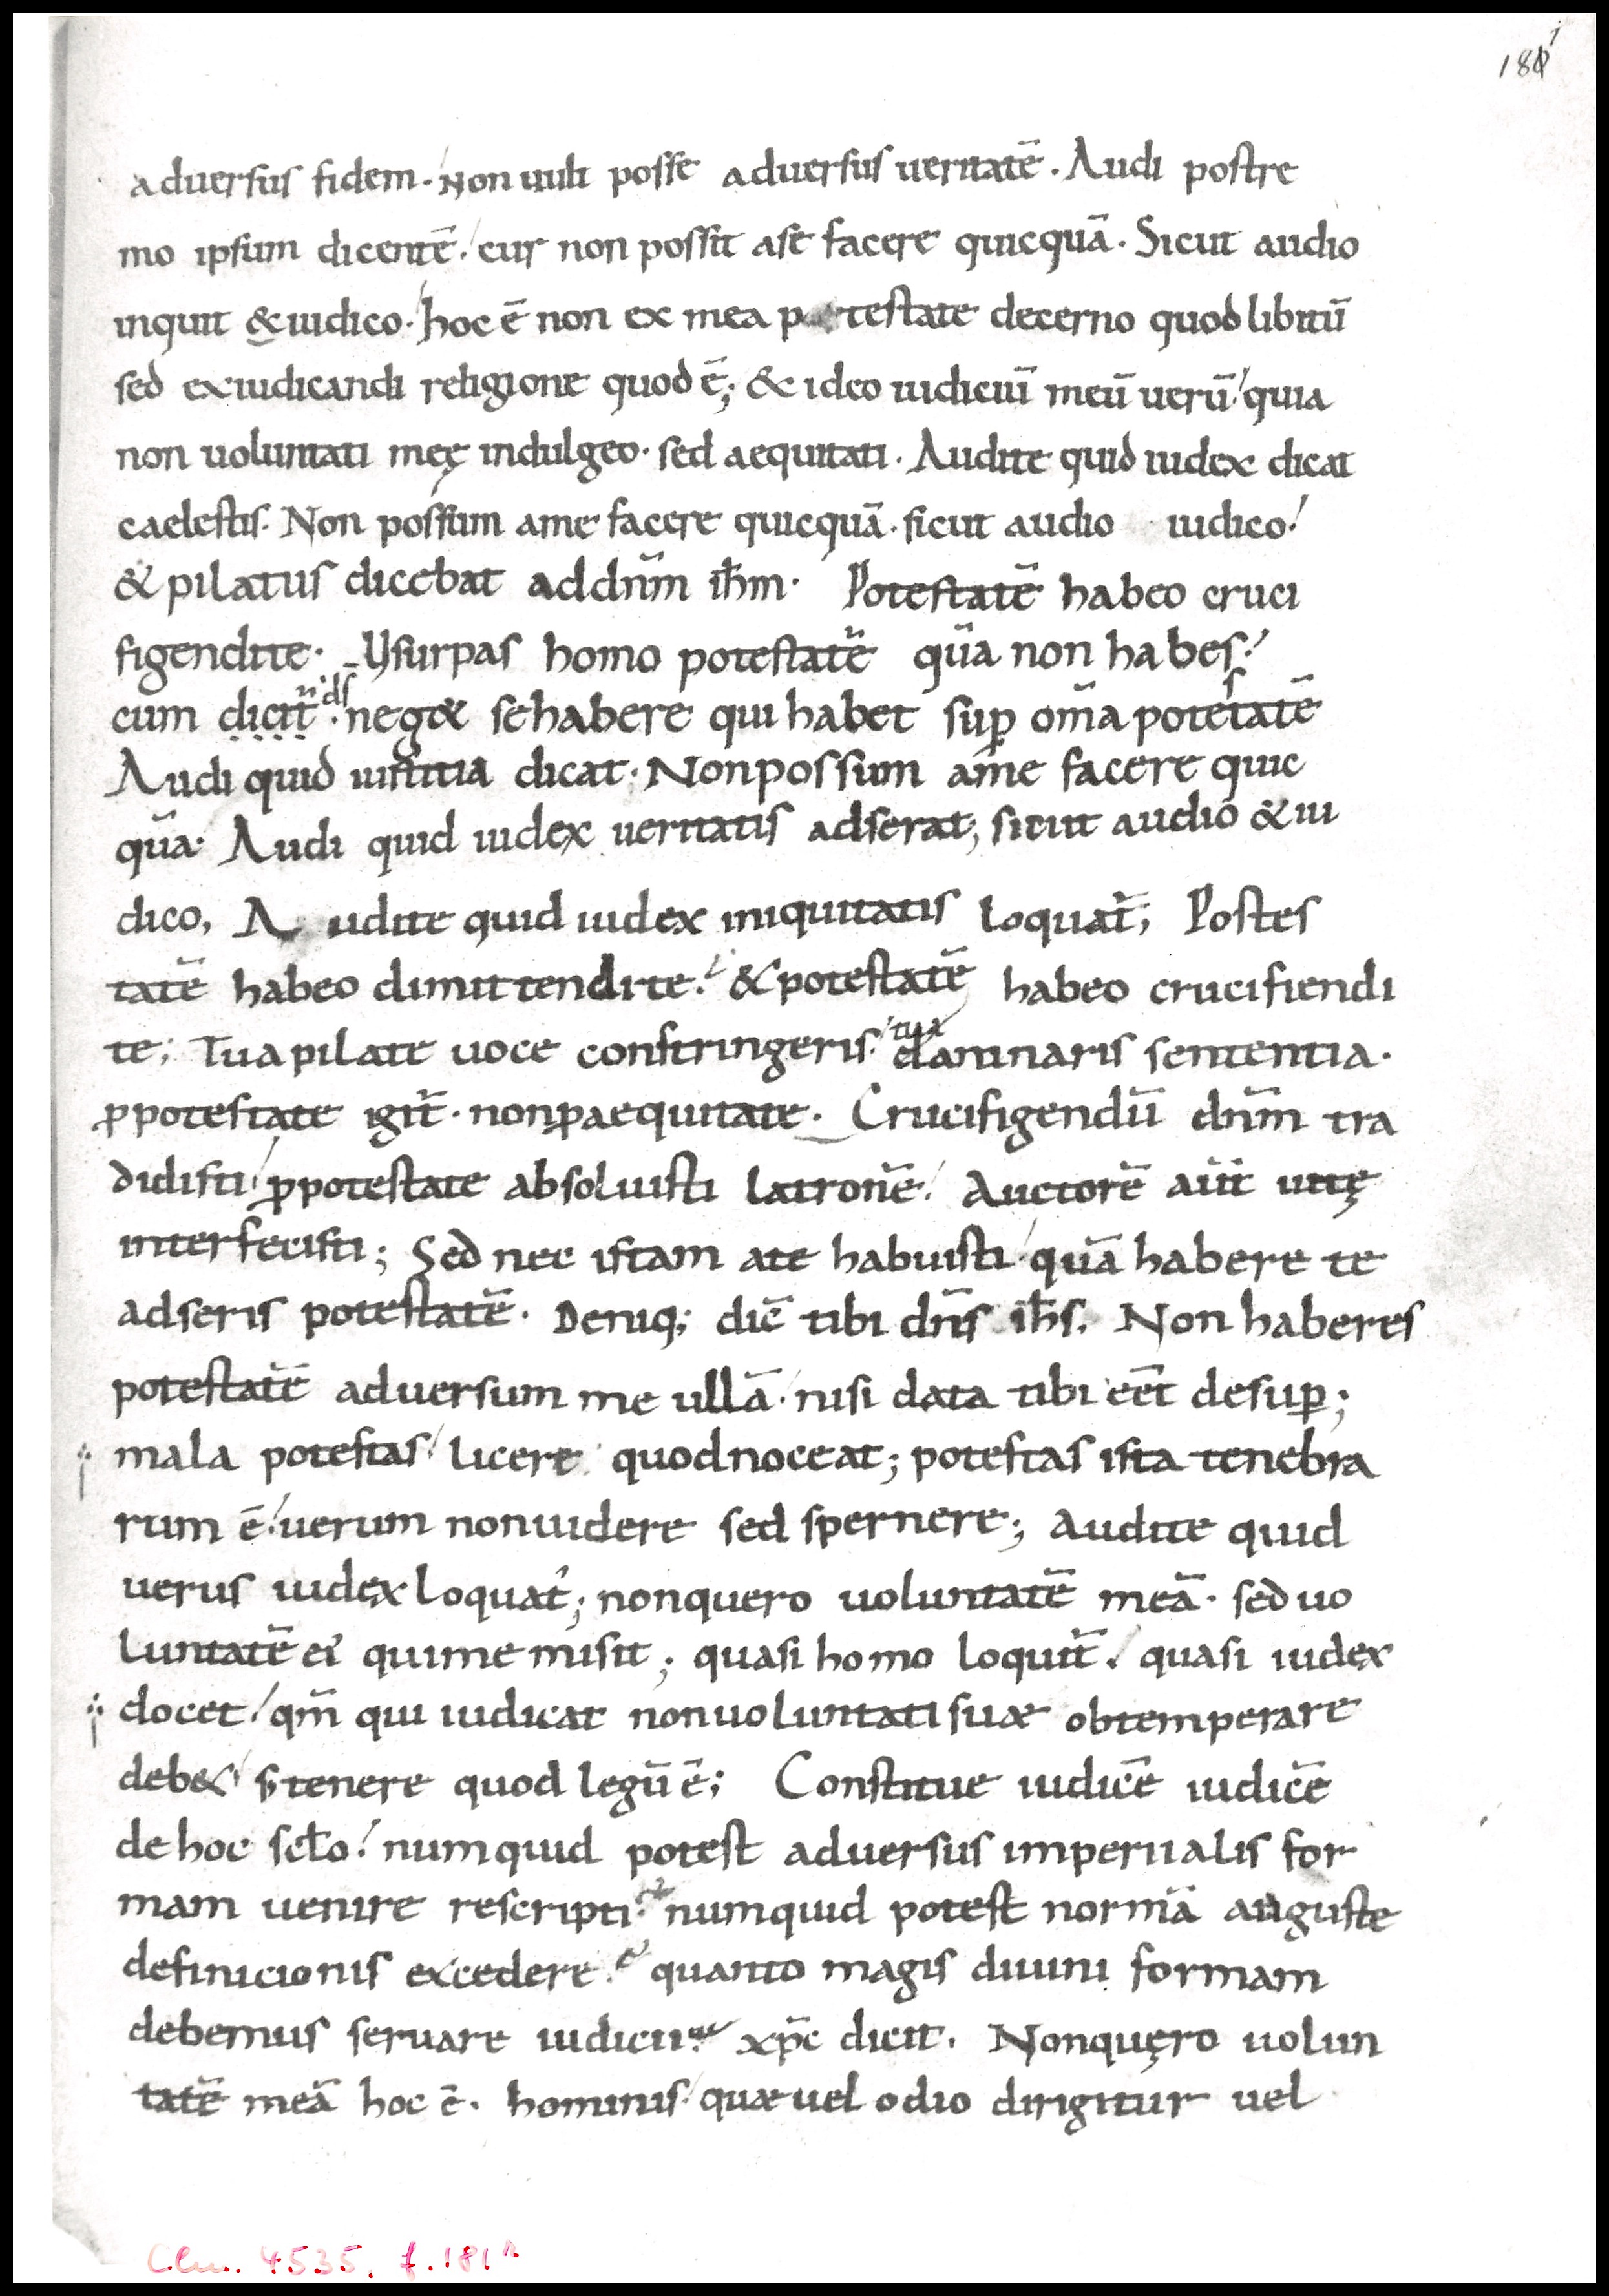 181
aduersus fidem. Non uult posse aduersus ueritatē. Audi postre
mo ipsum dicentē. cur non possit a se facere quicquā. Sicut audio
inquit & iudico. hoc ē non ex mea potestate decerno quod libitū
sed ex iudicandi religione quod ē; & ideo iudiciū meū uerū quia
non uoluntati meę indulgeo. sed aequitati. Audite quid iudex dicat
caelestis. Non possum ame facere quicquā. sicut audio iudico.
& pilatus dicebat ad dnm̄ ihm̄. Potestatē habeo cruci
figendite. Vsurpas homo potestatē quā non habes.
cum dicit̄ ds neg& se habere qui habet sup̱ om̄a potestatē
Audi quid iustitia dicat. Non possum ame facere quic
quā. Audi quid iudex ueritatis adserat; sicut audio & iu
dico, Audite quid iudex iniquitatis loquat̄; Postes
tatē habeo dimittendi te. & potestatē habeo crucifiendi
te; Tua pilate uoce constringeris. tua damnaris sententia.
ꝓ potestate igit̄. non ꝓ aequitate. Crucifigendū dnm̄ tra
didisti ꝓ potestate absoluisti latronē. Auctorē aūt uitę
interfecisti; Sed nec istam ate habuisti quā habere te
adseris potestatē. Deniq; dic̄ tibi dn̄s ih̄s. Non haberes
potestatē aduersum me ullā. nisi data tibi eēt desup̱;
mala potestas licere quod noceat; potestas ista tenebra
rum ē. uerum non uidere sed spernere; Audite quid
uerus iudex loquat̄; non quero uoluntatē meā. sed uo
luntatē ei' qui me misit; quasi homo loquit̄. quasi iudex
docet. qm̄ qui iudicat non uoluntati suæ obtemperare
deb& s; tenere quod legū ē; Constitue iudicē iudicē
de hoc sclo. numquid potest aduersus imperiialis for
mam uenire rescripti? numquid potest normā auguste
definicionis excedere? quanto magis diuini formam
debemus seruare iudicii? xp̄c dicit. Non quęro uolun
tatē meā hoc ē. hominis. quæ uel odio dirigitur uel
Clm. 4535, f. 181r